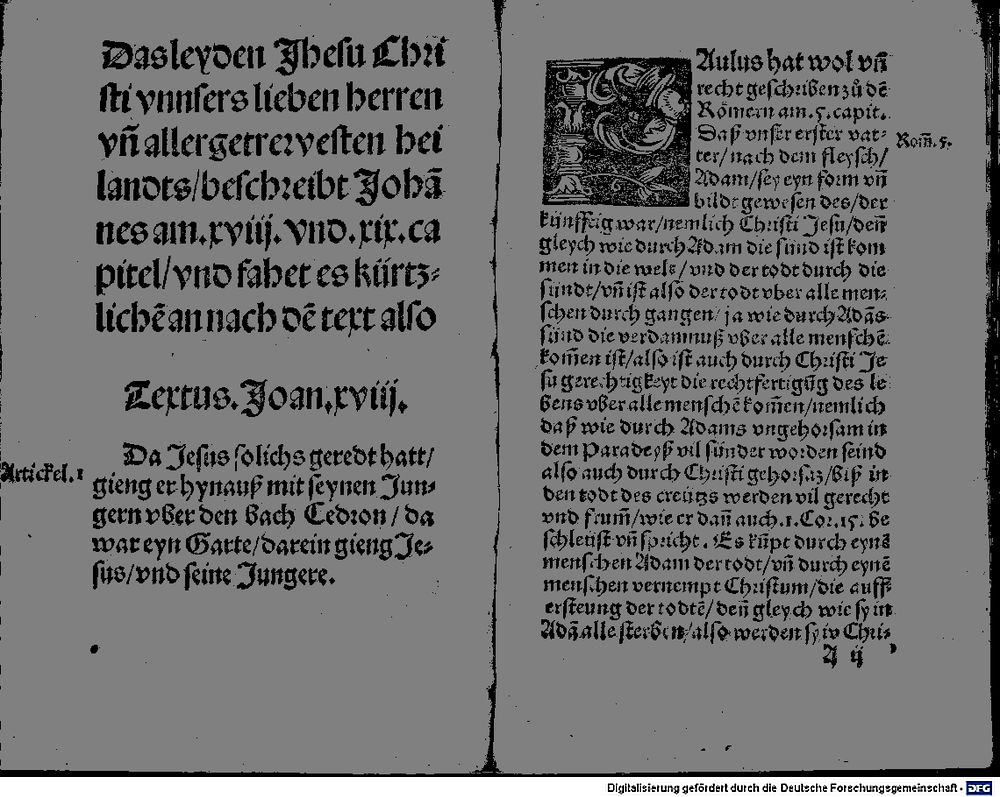 Das leyden Jhesu Chri
sti vnnsers lieben herren
vñ allergetrewesten hei
landts/beschreibt Johã
nes am.xviij.vnd.xix.ca
pitel/vnd fahet es kürtz⸗
lichẽ an nach dẽ text also
Textus. Joan.xviij.
Artickel.1
Da Jesus solichs geredt hatt/
gieng er hynauß mit seynen Jun⸗
gern vber den bach Cedron / da
war eyn Garte/darein gieng Je⸗
sus/vnd seine Jungere.
PAulus hat wol vñ
recht geschriben zů dẽ
Römern am.5.capit.
Daß vnser erster vat⸗
ter/nach dem fleysch/
Adam/sey eyn form vñ
bildt gewesen des/der
Rom̃.5.
künfftig war/nemlich Christi Jesu/deñ
gleych wie durch Adam die sünd ist kom
men in die welt/vnd der todt durch die
sündt/vñ ist also der todt vber alle men⸗
schen durch gangen/ja wie durch Adãs
sünd die verdamnuß vber alle menschẽ
kom̃en ist/also ist auch durch Christi Je
su gerechtigkeyt die rechtfertigũg des le
bens vber alle menschẽ kom̃en/nemlich
daß wie durch Adams vngehorsam in
dem Paradeyß vil sünder worden seind
also auch durch Christi gehorsaz/biß in
den todt des creützs werden vil gerecht
vnd frum̃/wie er dañ auch.1.Cor.15. be
schleüst vñ spricht. Es kũpt durch eynẽ
menschen Adam der todt/vñ durch eynẽ
menschen vernempt Christum/die auff
ersteung der todtẽ/deñ gleych wie sy in
Adã alle sterben/also werden sy in Chri⸗
A ij
Digitalisierung gefördert durch die Deutsche Forschungsgemeinschaft - DFG